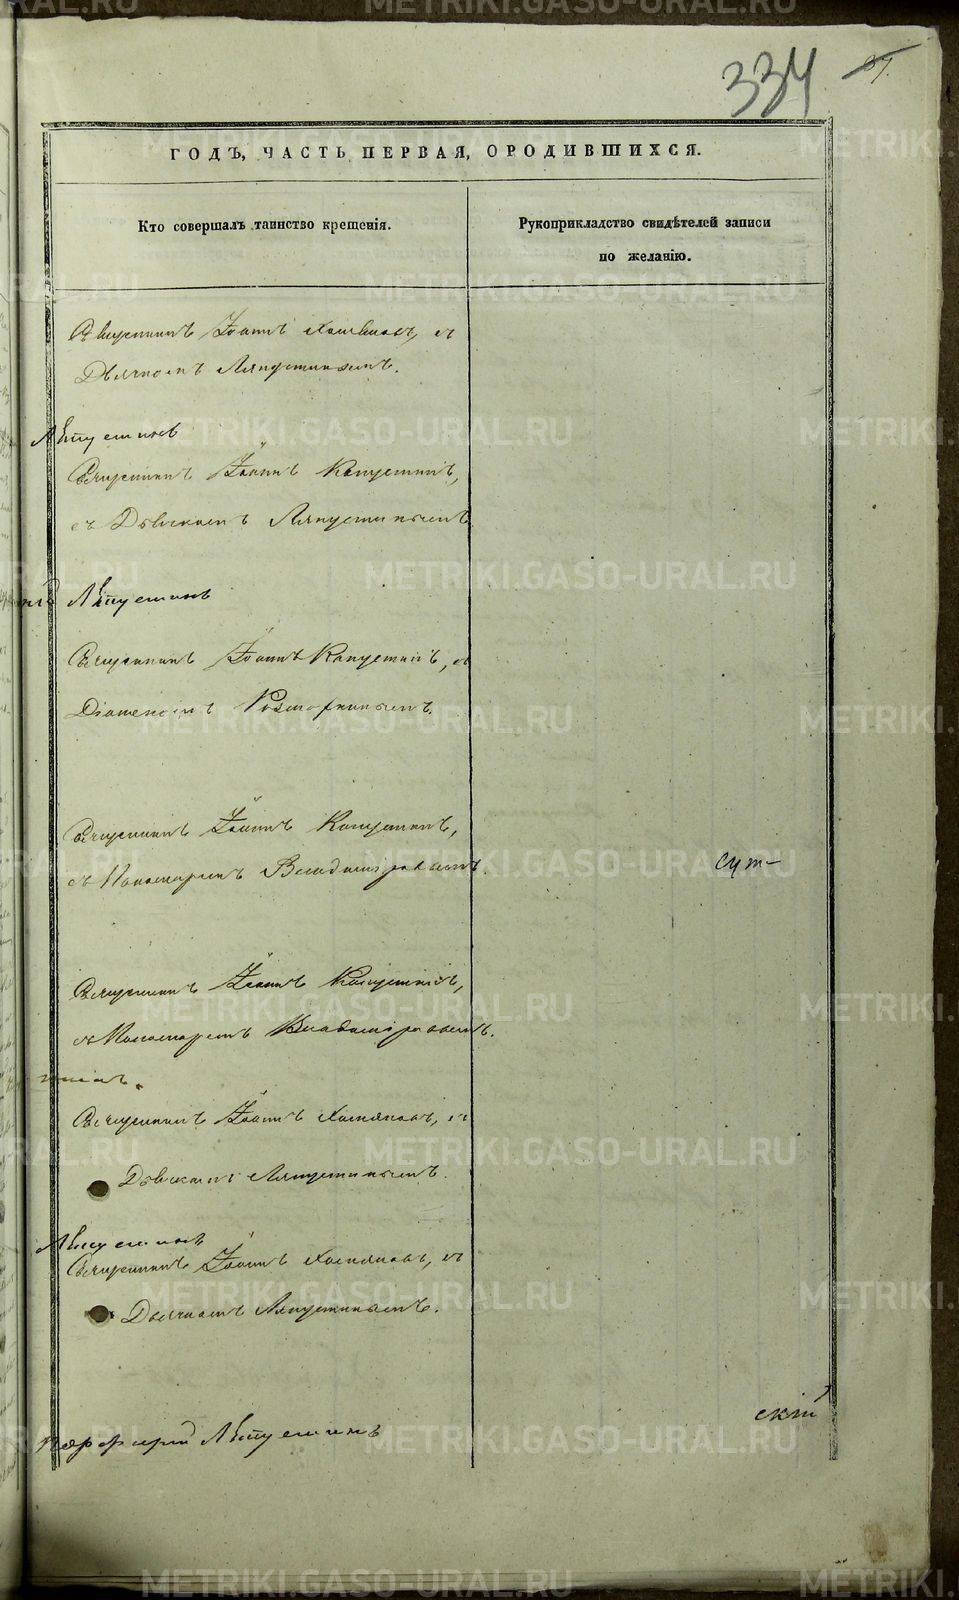 334
37.
ГОДЪ, ЧАСТЬ ПЕРВАЯ, О РОДИВШИХСЯ.
Кто совершалъ таинство крещенія.
Рукоприкладство свидѣтелей записи
по желанію.
Священникъ Іоаннъ Хомяковъ, съ
Дьячкомъ Ляпустинымъ.
Ляпустинъ
Священникъ Іоаннъ Капустинъ,
съ Дьячкомъ Ляпустинымъ
Ляпустинъ
Священникъ Іоаннъ Капустинъ, съ
Діакономъ
Священникъ Іоаннъ Капустинъ,
съ Пономаремъ Владиміровымъ.
сут-
Священникъ Іоаннъ Капустинъ,
съ Пономаремъ Владиміровымъ.
Священникъ Іоаннъ Хомяковъ, съ
Дьячкомъ Ляпустинымъ.
Ляпустинъ
Священникъ Іоаннъ Хомяковъ, съ
Дьячкомъ Ляпустинымъ.
скій
Порфирій Ляпустинъ
METRIKI.GASO-URAL.RU